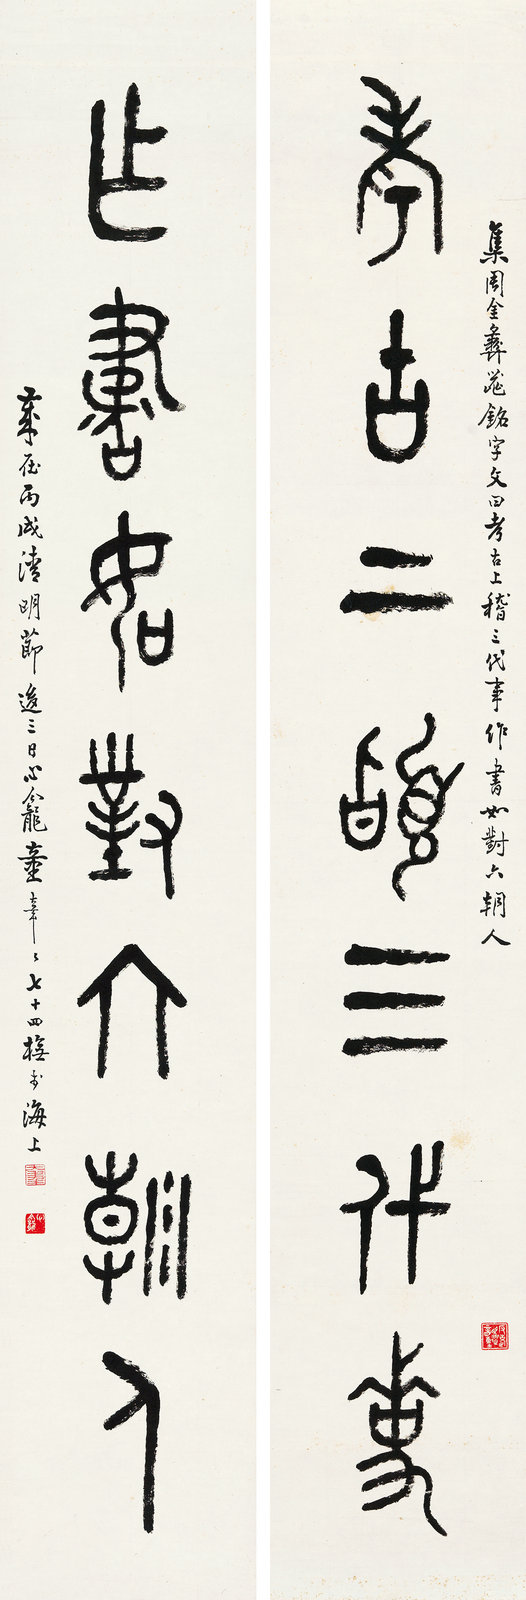 集周金彝器銘字文曰考古上稽三代事作書如對六朝人
考古上稽三代事
作書如對六朝人
歲在丙戌清明節後三日心龕童大年〻七十四橅於海上